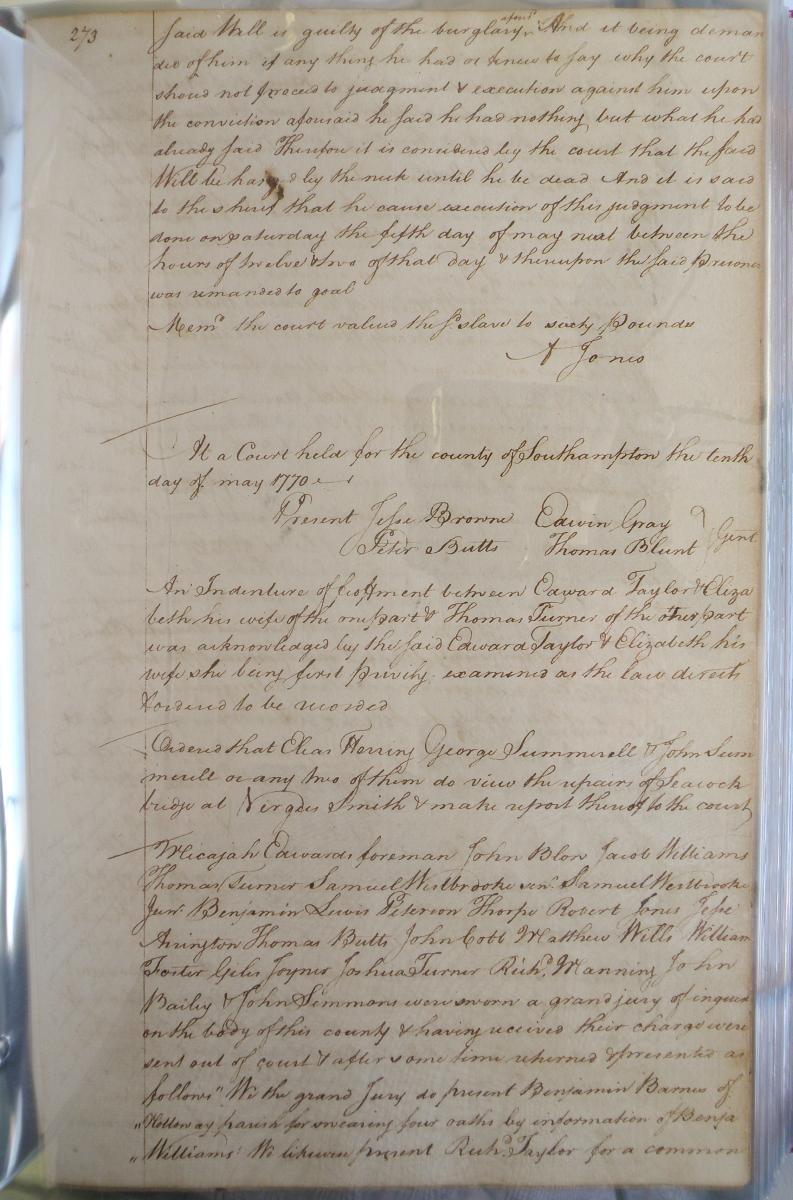 273
said Will is guilty of the burglary afores.d And it being deman
ded of him if any thing he had or knew to say why the court
shoud not proceed to judgment & execution against him upon
the conviction aforesaid he said he had nothing but what he had
already said Therefore it is considered by the court that the said
Will be hang'd by the neck until he be dead And it is said
to the sherif that he cause execution of this judgment to be
done on saturday the fifth day of may next between the
hours of twelve & two of that day & thereupon the said Prisoner
was remanded to goal
Mem.o the court valued the s.d slave to sixty Pounds
A Jones
At a Court held for the county of Southampton the tenth
day of may 1770
Present Jesse Browne Edwin Gray
Peter Butts Thomas Blunt Gent
An Indenture of feoffment between Edward Taylor & Eliza
beth his wife of the one part & Thomas Turner of the other part
was acknowledged by the said Edward Taylor & Elizabeth his
wife she being first privily examined as the law directs
& ordered to be recorded
Ordered that Elias Herring George Summerell & John Sum
merell or any two of them do view the repairs of Seacock
bridge at Smith & make report thereof to the court
Micajah Edwards foreman John Blow Jacob Williams
Thomas Turner Samuel Westbrooke sen.r Samuel Westbrooke
Jun.r Benjamin Lewis Peterson Thorpe Robert Jones Jesse
Arrington Thomas Butts John Cobb Matthew Wills William
Foster Giles Joyner Joshua Turner Rich.d Manning John
Bailey & John Simmons were sworn a grand jury of inquest
on the body of this county & having received their charge were
sent out of court & after some time returned & presented as
follows "We the grand Jury do present Benjamin Barnes of
"Nottoway parish for swearing four oaths by information of Benja
"Williams. We likewise present Rich.d Taylor for a common